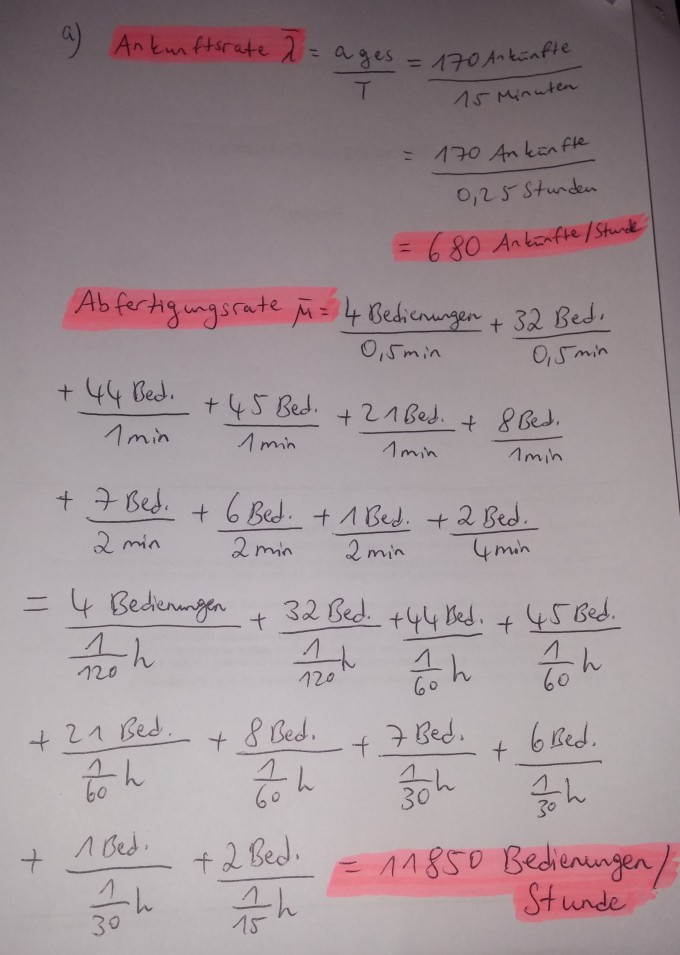 a) Ankunftsrate λ̄ = a ges / T = 170 Ankünfte / 15 Minuten
= 170 Ankünfte / 0,25 Stunden
= 680 Ankünfte/Stunde
Abfertigungsrate μ̄ = 4 Bedienungen / 0,5 min + 32 Bed. / 0,5 min
+ 44 Bed. / 1 min + 45 Bed. / 1 min + 21 Bed. / 1 min + 8 Bed. / 1 min
+ 7 Bed. / 2 min + 6 Bed. / 2 min + 1 Bed. / 2 min + 2 Bed. / 4 min
= 4 Bedienungen / 1/120 h + 32 Bed. / 1/120 h + 44 Bed. / 1/60 h + 45 Bed. / 1/60 h
+ 21 Bed. / 1/60 h + 8 Bed. / 1/60 h + 7 Bed. / 1/30 h + 6 Bed. / 1/30 h
+ 1 Bed. / 1/30 h + 2 Bed. / 1/15 h = 11850 Bedienungen/
Stunde